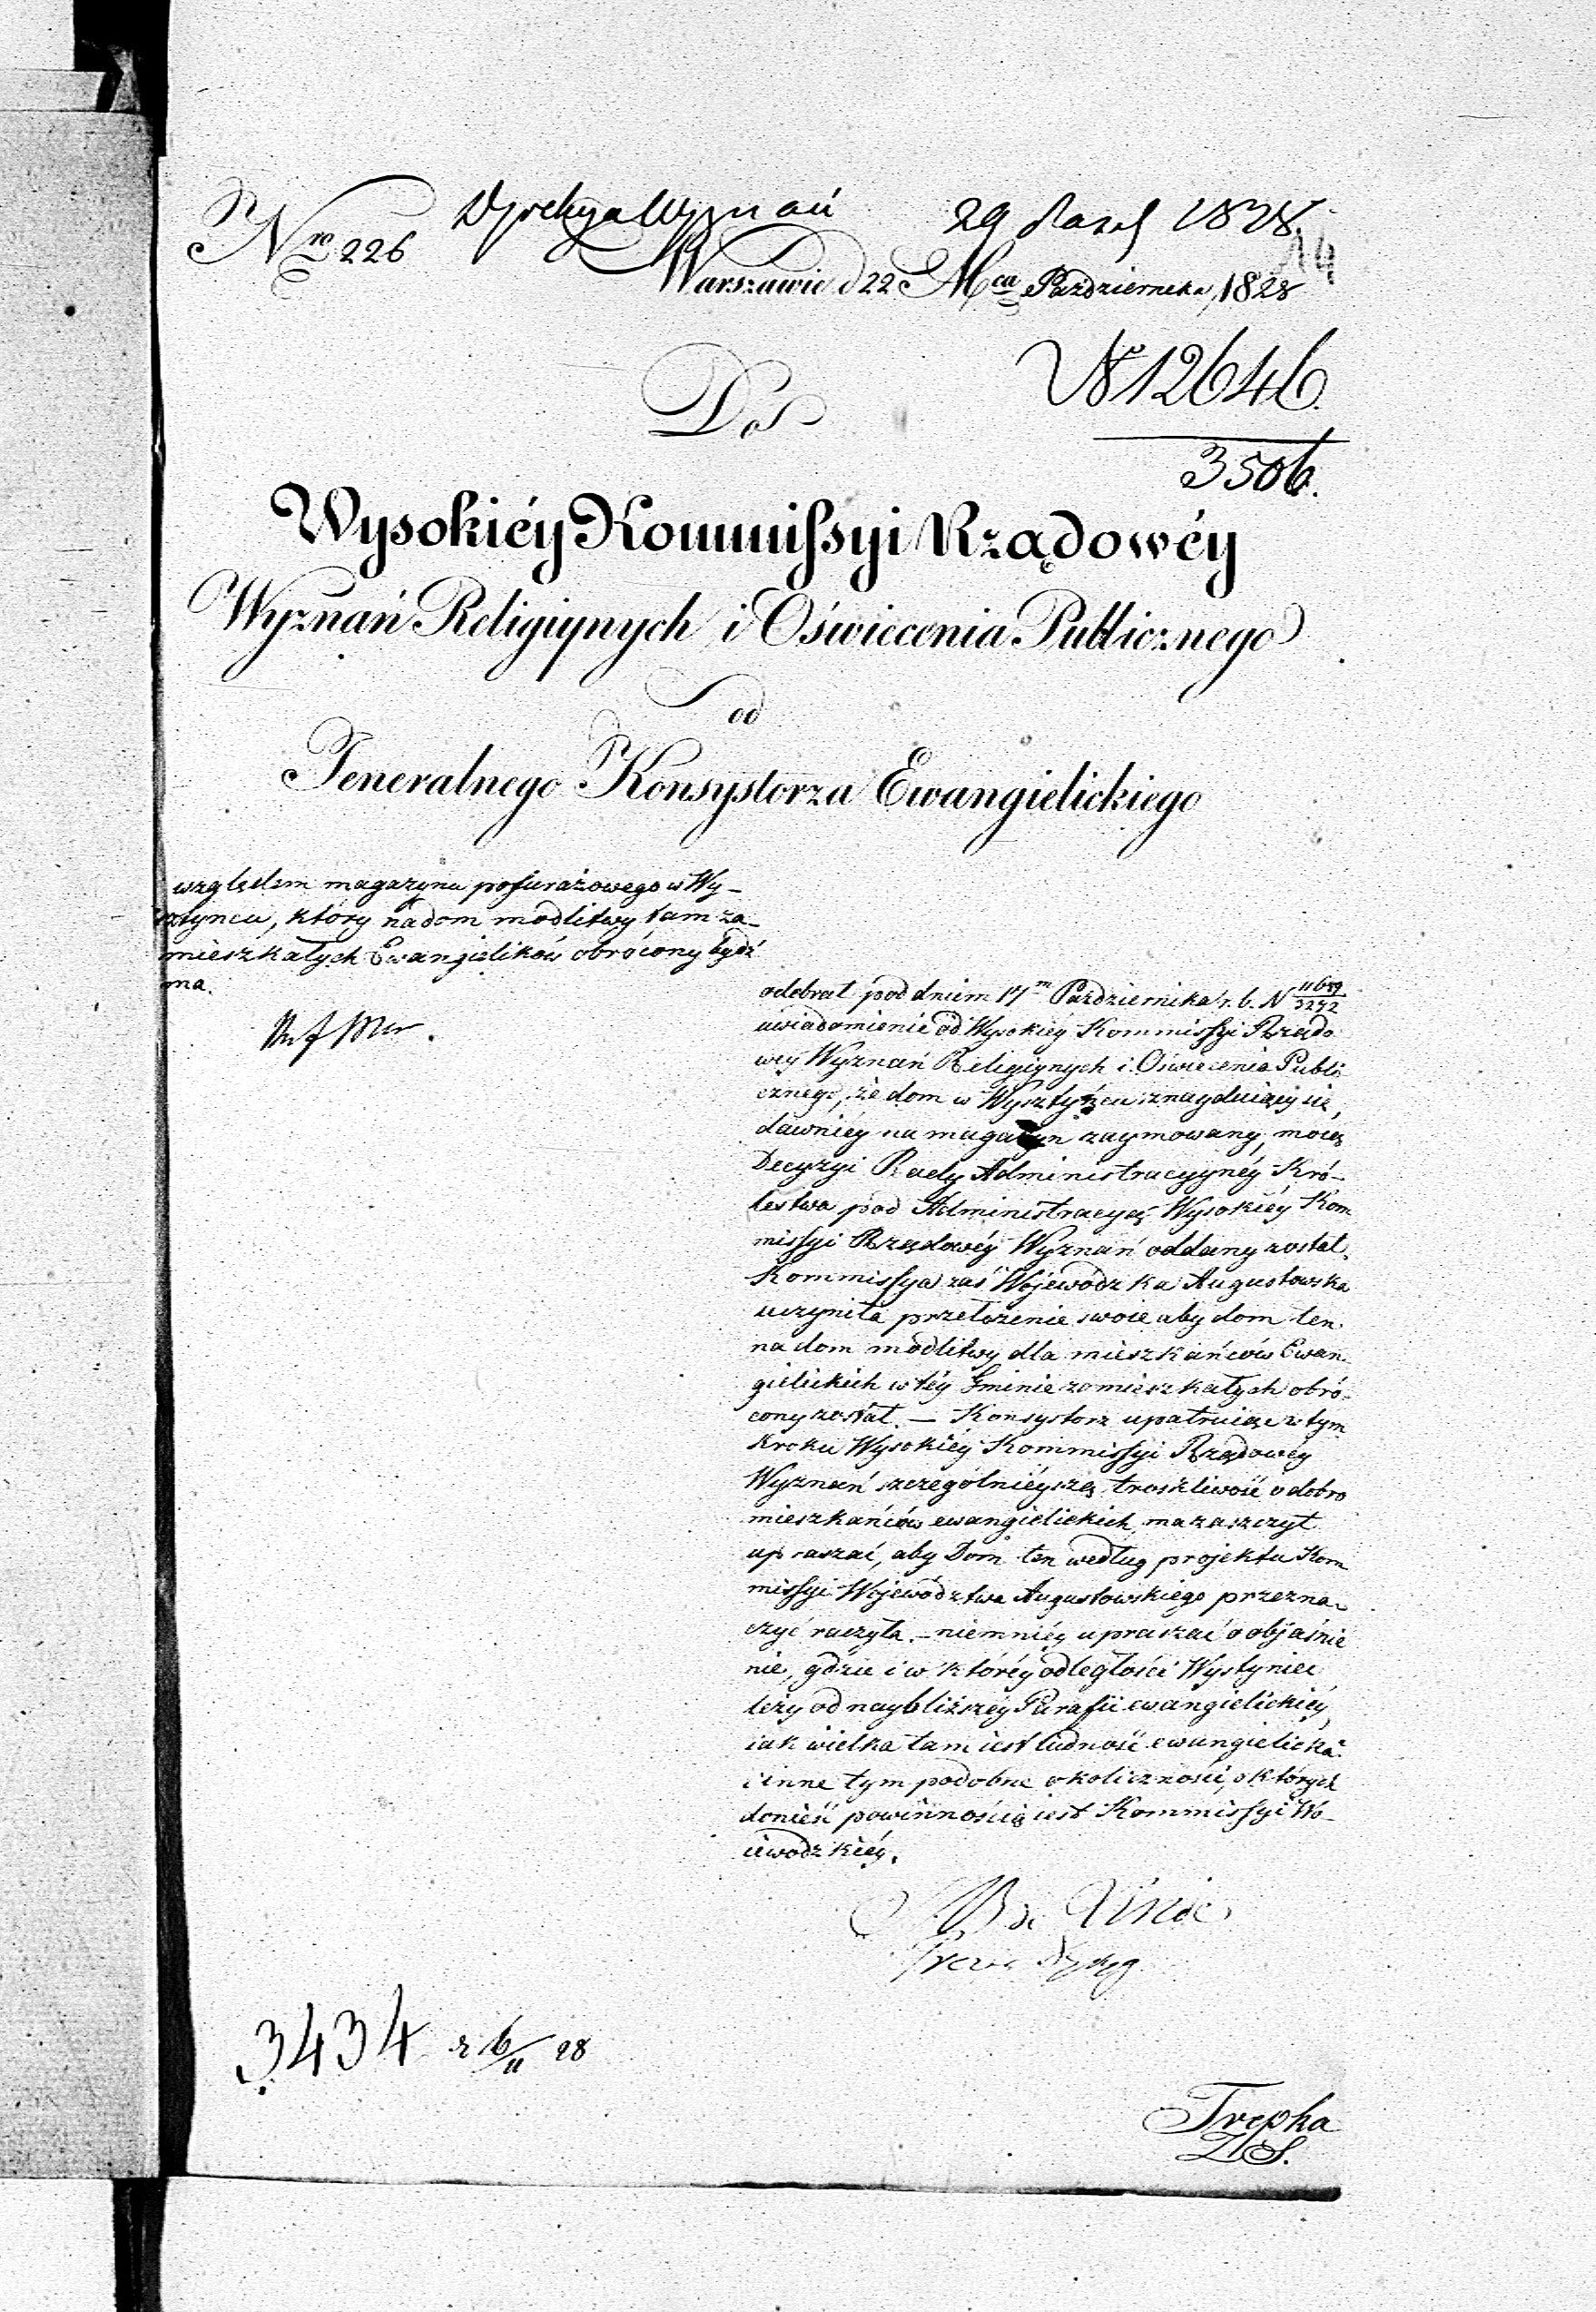 Nro 226
Dyrekcya Wyznań
29 Paźd 1828.
14
Warszawie d 22 Mca Października 1828
N 12646.
3506.
Do
Wysokiéy Kommissyi Rządowéy
Wyznań Religiynych i Oświecenia Publicznego
od
Jeneralnego Konsystorza Ewangielickiego
względem magazynu pofurażowego w Wy-
sztyncu, który na dom modlitwy tam za-
mieszkałych Ewangielików obrócony bydź
ma.
odebrał pod dniem 17m Października r. b. N 11689/3272
uwiadomienie od Wysokiéy Kommissyi Rządo
wéy Wyznań Religiynych i Oświecenia Publi
cznego, że dom w Wysztyńcu znayduiący się,
dawniéy na magazyn zaymowany, mocą
Decyzyi Rady Administracyynéy Kró-
lestwa pod Administracyą Wysokiéy Kom
missyi Rządowéy Wyznań oddany został.
Kommissya zaś Wojewódzka Augustowska
uczyniła przełożenie swoie aby dom ten
na dom modlitwy dla mieszkańców Ewan-
gielickich w téy Gminie zamieszkałych obró-
cony został. — Konsystorz upatruiąc w tym
kroku Wysokiéy Kommissyi Rządowéy
Wyznań szczególniéyszą troskliwość o dobro
mieszkańców ewangielickich, ma zaszczyt
upraszać, aby Dom ten według projektu Kom
missyi Województwa Augustowskiego przezna-
czyć raczyła. – niemniéy upraszać o objaśnie
nie, gdzie i w któréy odległości Wystyniec
leży od naybliższéy Parafii ewangielickiéy,
iak wielka tam iest ludność ewangielicka?
i inne tym podobne okoliczności, o których
donieść powinnością iest Kommissyi Wo-
iewódzkiéy.
3434 z 6/11 28
Trepka
Z S.